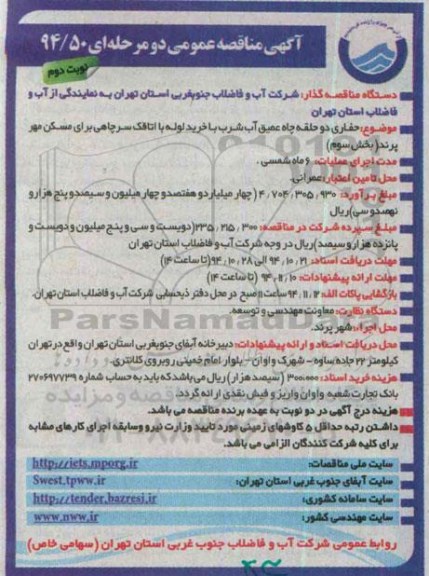 آگهی مناقصه عمومی دو مرحله‌ای ۹۴/۵۰
نوبت دوم
دستگاه مناقصه گذار: شرکت آب و فاضلاب جنوبغربی استان تهران به نمایندگی از آب و
فاضلاب استان تهران
موضوع: حفاری دو حلقه چاه عمیق آب شرب با خرید لوله با اتاقک سرچاهی برای مسکن مهر
پرند (بخش سوم)
مدت اجرای عملیات: ۶ ماه شمسی.
محل تامین اعتبار: عمرانی.
مبلغ برآورد: ۴/۷۰۴/۳۰۵/۹۳۰ (چهار میلیارد و هفتصد و چهار میلیون و سیصد و پنج هزار و
نهصد و سی) ریال
مبلغ سپرده شرکت در مناقصه: ۲۳۵/۲۱۵/۳۰۰ (دویست و سی و پنج میلیون و دویست و
پانزده هزار و سیصد) ریال در وجه شرکت آب و فاضلاب استان تهران
مهلت دریافت اسناد: ۹۴/۱۰/۲۱ الی ۹۴/۱۰/۲۸ (تا ساعت ۱۴)
مهلت ارائه پیشنهادات: ۹۴/۱۱/۱۰ (تا ساعت ۱۴)
بازگشایی پاکات الف: ۹۴/۱۱/۱۲ ساعت ۱۱ صبح در محل دفتر ذیحسابی شرکت آب و فاضلاب استان تهران.
دستگاه نظارت: معاونت مهندسی و توسعه.
محل اجراء: شهر پرند.
محل دریافت اسناد و ارائه پیشنهادات: دبیرخانه آبفای جنوبغربی استان تهران واقع در تهران
کیلومتر ۲۲ جاده ساوه - شهرک واوان - بلوار امام خمینی روبروی کلانتری.
هزینه خرید اسناد: ۳۰۰،۰۰۰ (سیصد هزار) ریال می باشد که باید به حساب شماره ۲۷۰۶۹۷۷۳۹
بانک تجارت شعبه واوان واریز و فیش نقدی ارائه گردد.
هزینه درج آگهی در دو نوبت به عهده برنده مناقصه می باشد.
داشتن رتبه حداقل ۵ کاوشهای زمینی مورد تایید وزارت نیرو و سابقه اجرای کارهای مشابه
برای کلیه شرکت کنندگان الزامی می باشد.
سایت ملی مناقصات: http://iets.mporg.ir
سایت آبفای جنوب غربی استان تهران: Swest.tpww.ir
سایت سامانه کشوری: http://tender.bazresi.ir
سایت مهندسی کشور: www.nww.ir
روابط عمومی شرکت آب و فاضلاب جنوب غربی استان تهران (سهامی خاص)